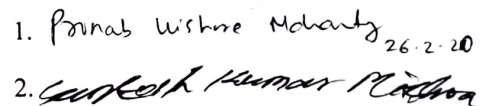 1. Pranab Kishore Mohanty
26.2.20
2. Santosh Kumar Mishra